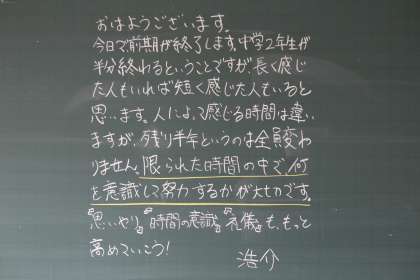 おはようございます。
今日で前期が終了します。中学2年生が
半分終わるということですが、長く感じ
た人もいれば短く感じた人もいると
思います。人によって感じる時間は違い
ますが、残り半年というのは全員変わ
りません。限られた時間の中で何
を意識して努力するかが大切です。
"思いやり""時間の意識""礼儀"も、もっと
高めていこう!
浩介